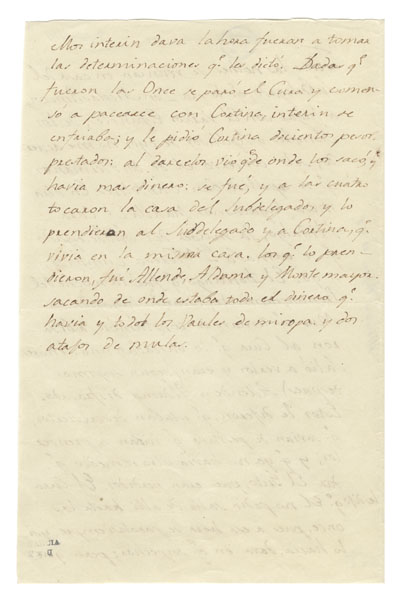 Mos interin dava la hora fueran a tomar
las determinaciones q.e les dictó. Dadas q.e
fueron las Once se paró el Cura y comen-
só a pacearse con Cortina, interin se
entraba; y le pidio Cortina docientos pesos
prestados: al darcelos vio q.e de onde los sacó, q.e
havia mas dinero: se fué, y a las cuatro
tocaron la casa del Subdelegado, y lo
prendieron al Subdelegado y a Cortina, q.e
vivia en la misma casa. los q.e lo pren-
dieron, fué Allende, Aldama y Montemayor
sacando de onde estaba todo el dinero q.e
havia y todos los baules de mi ropa, y dos
atajos de mulas.